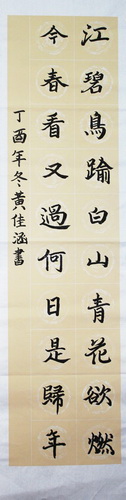 江碧鳥踰白山青花欲燃
今春看又過何日是歸年
丁酉年冬黃佳涵書